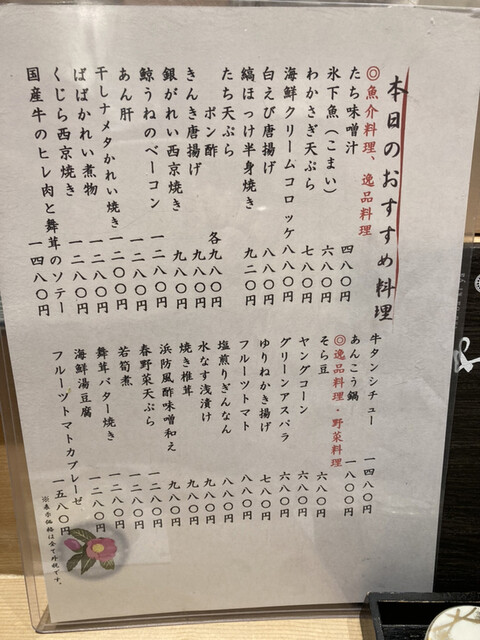 本日のおすすめ料理
◎魚介料理、逸品料理
たち味噌汁 四八〇円
氷下魚(こまい) 六八〇円
わかさぎ天ぷら 七八〇円
海鮮クリームコロッケ 八八〇円
白えび唐揚げ 八八〇円
縞ほっけ半身焼き 九二〇円
たち天ぷら
ポン酢 各九八〇円
きんき唐揚げ 九八〇円
銀がれい西京焼き 九八〇円
鯨うねのベーコン 一二八〇円
あん肝 一二八〇円
干しナメタかれい焼き 一二〇〇円
ばばかれい煮物 一二八〇円
くじら西京焼き 一二八〇円
国産牛のヒレ肉と舞茸のソテー 一四八〇円
牛タンシチュー 一四八〇円
あんこう鍋 一八〇〇円
◎逸品料理・野菜料理
そら豆 六八〇円
ヤングコーン 六八〇円
グリーンアスパラ 六八〇円
ゆりねかき揚げ 七八〇円
フルーツトマト 八八〇円
塩煎りぎんなん 八八〇円
水なす浅漬け 九八〇円
焼き椎茸 九八〇円
浜防風酢味噌和え 九八〇円
春野菜天ぷら 一二八〇円
若筍煮 一二八〇円
舞茸バター焼き 一二八〇円
海鮮湯豆腐 一二八〇円
フルーツトマトカプレーゼ 一五八〇円
※表示価格は全て外税です。